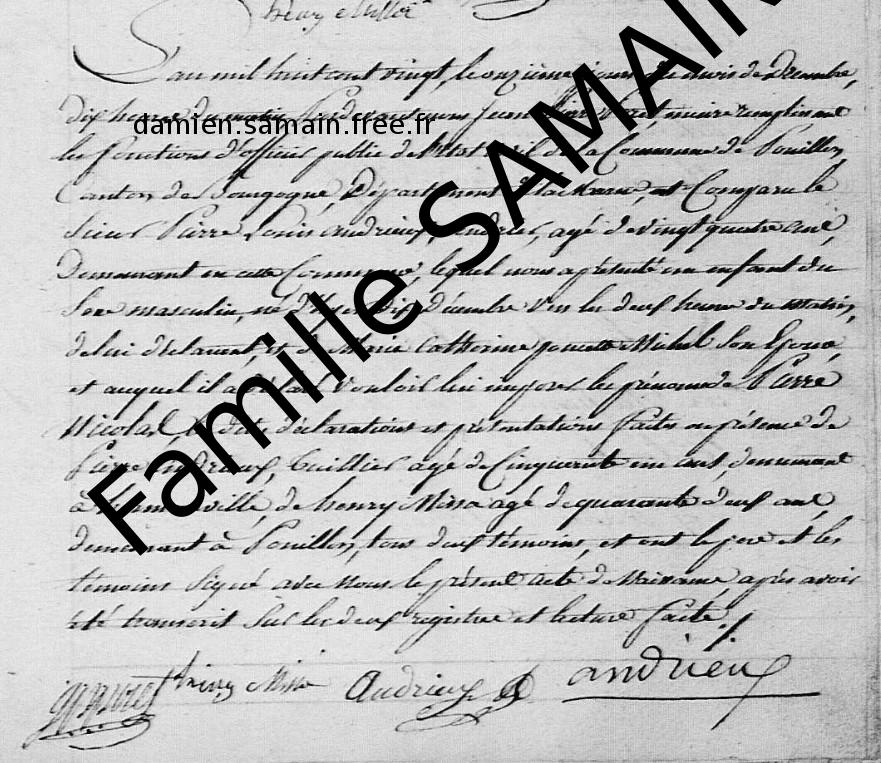 henry Missa
L'an mil huit cent vingt, le onzième jour du mois de Décembre,
dix heures du matin Pardevant nous Jean maire remplissant
les fonctions d'officier public de l'Etat civil de la Commune de Pouillon,
Canton de Bourgogne, Département de la Marne, est Comparu le
Sieur Pierre Louis andrieux, agé de vingt quatre ans,
Demeurant en cette Commune, lequel nous a présenté un enfant du
Sexe masculin, né d'hyer dix Décembre vers les deux heures du matin,
de lui déclarant, et de Marie Catherine poncette Michel Son Epouse
et auquel il a déclaré Vouloir lui imposer les prénoms de Pierre
Nicolas, les dites déclarations et présentations faites en présence de
Pierre andrieux, Tuillier agé de Cinquante un ans, demeurant
à ville, de henry Missa agé de quarante deux ans,
demeurant à Pouillon, tous deux témoins, et ont le pere et les
témoins Signé avec nous le présent acte de Naissance, après avoir
été transcrit Sur les deux registres et lecture faite./.
henry Missa Andrieux andrieux
damien.samain.free.fr
Famille SAMAIN